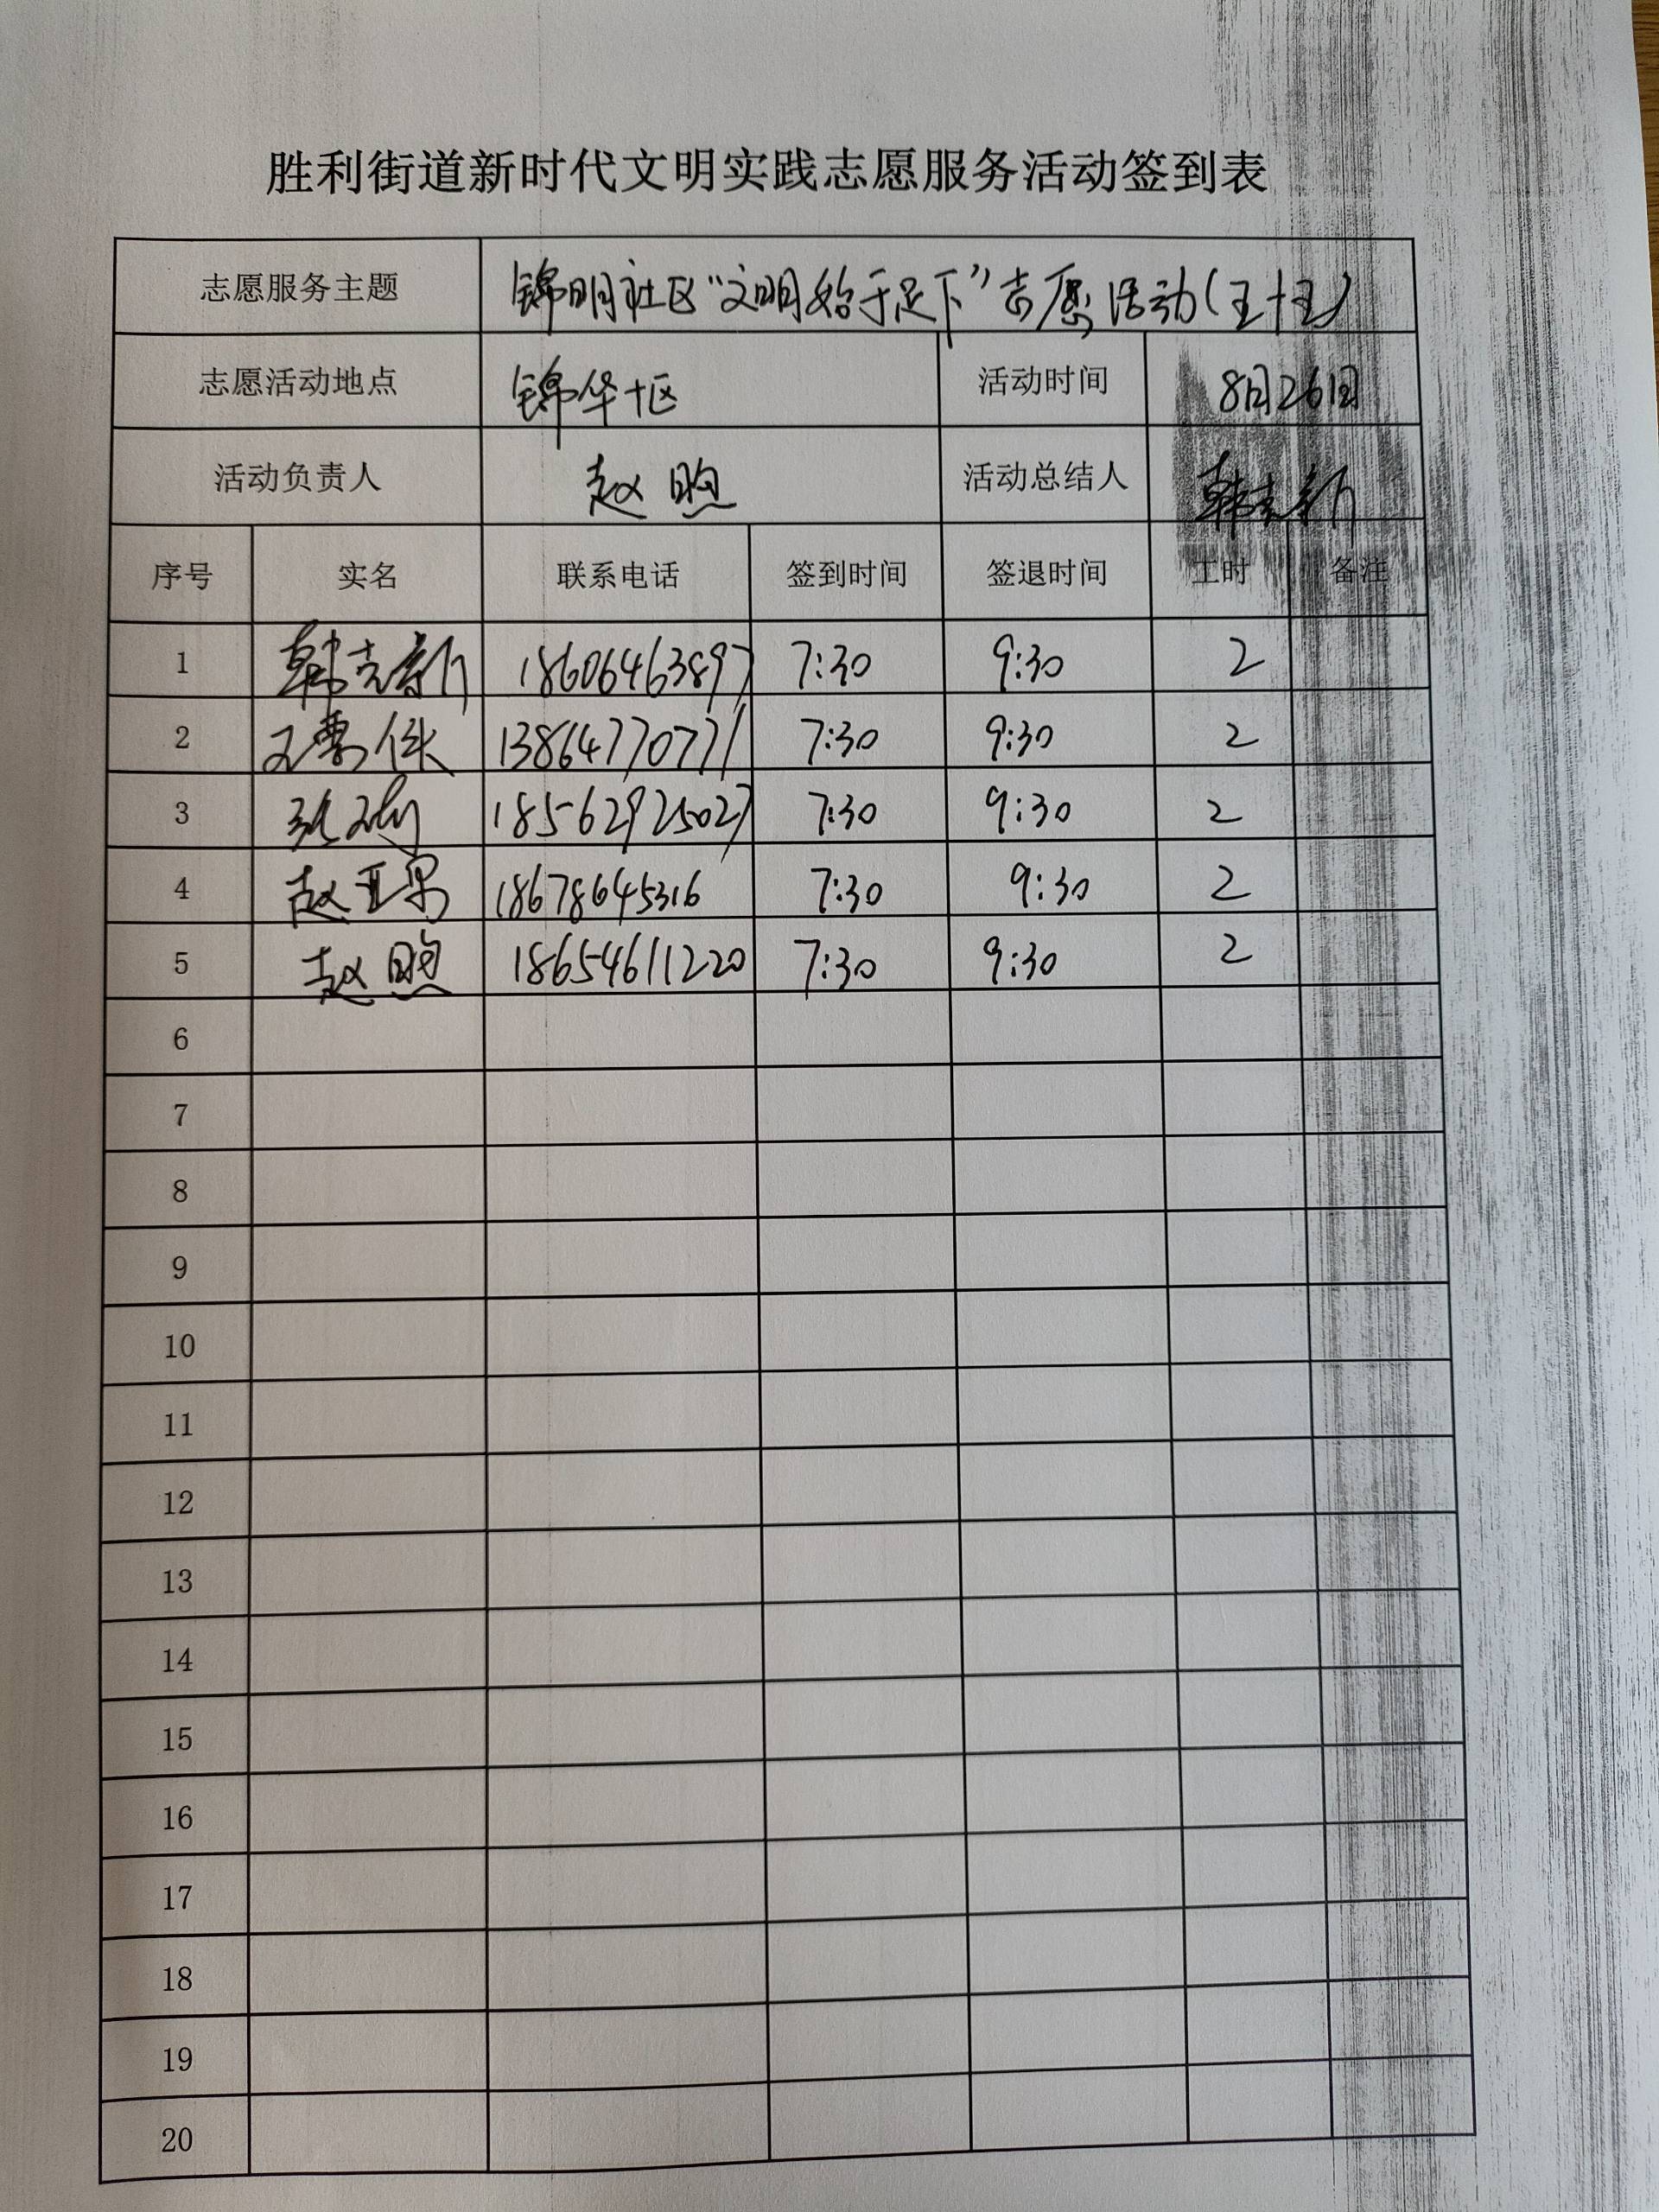 胜利街道新时代文明实践志愿服务活动签到表
志愿服务主题 锦明社区“文明始于足下”志愿活动(五十五)
志愿活动地点 锦华十区 活动时间 8月26日
活动负责人 赵煦 活动总结人 韩克新
序号 实名 联系电话 签到时间 签退时间 工时 备注
1 韩克新 18606463897 7:30 9:30 2
2 13864770771 7:30 9:30 2
3 18562925027 7:30 9:30 2
4 18678645316 7:30 9:30 2
5 赵煦 18654611220 7:30 9:30 2
6
7
8
9
10
11
12
13
14
15
16
17
18
19
20